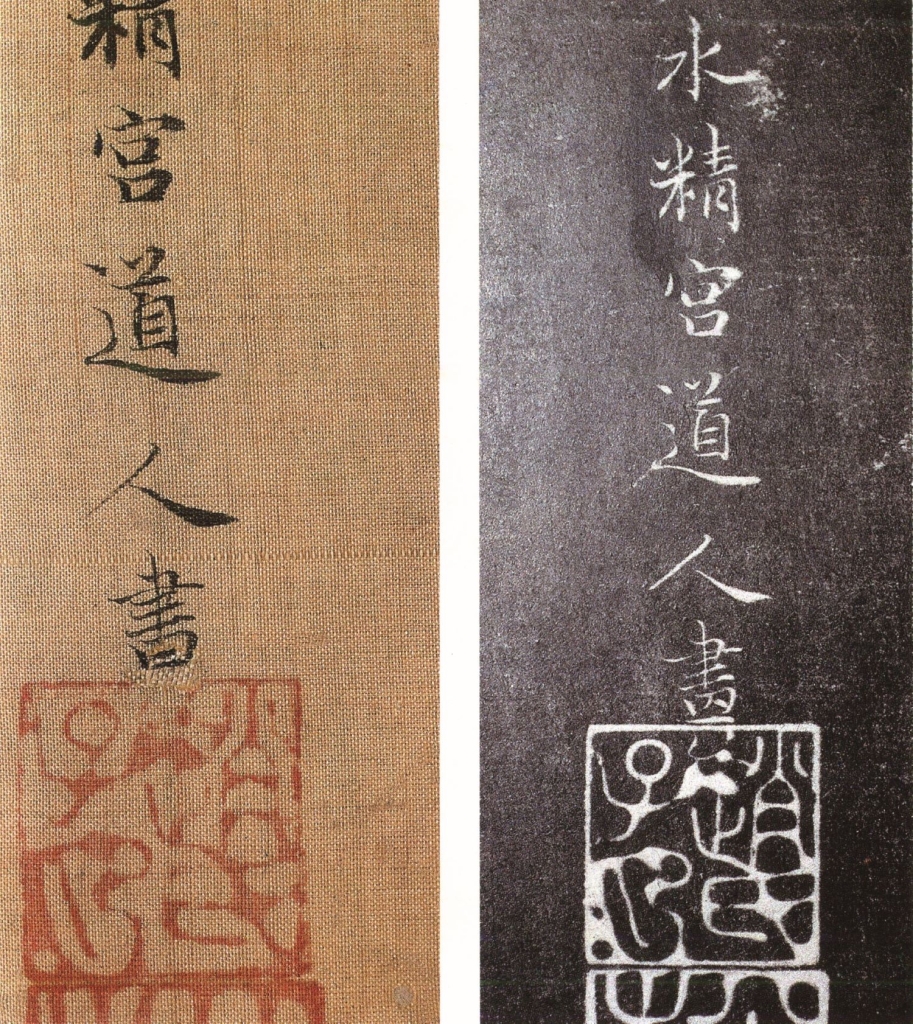 精宮道人書
水精宮道人畫